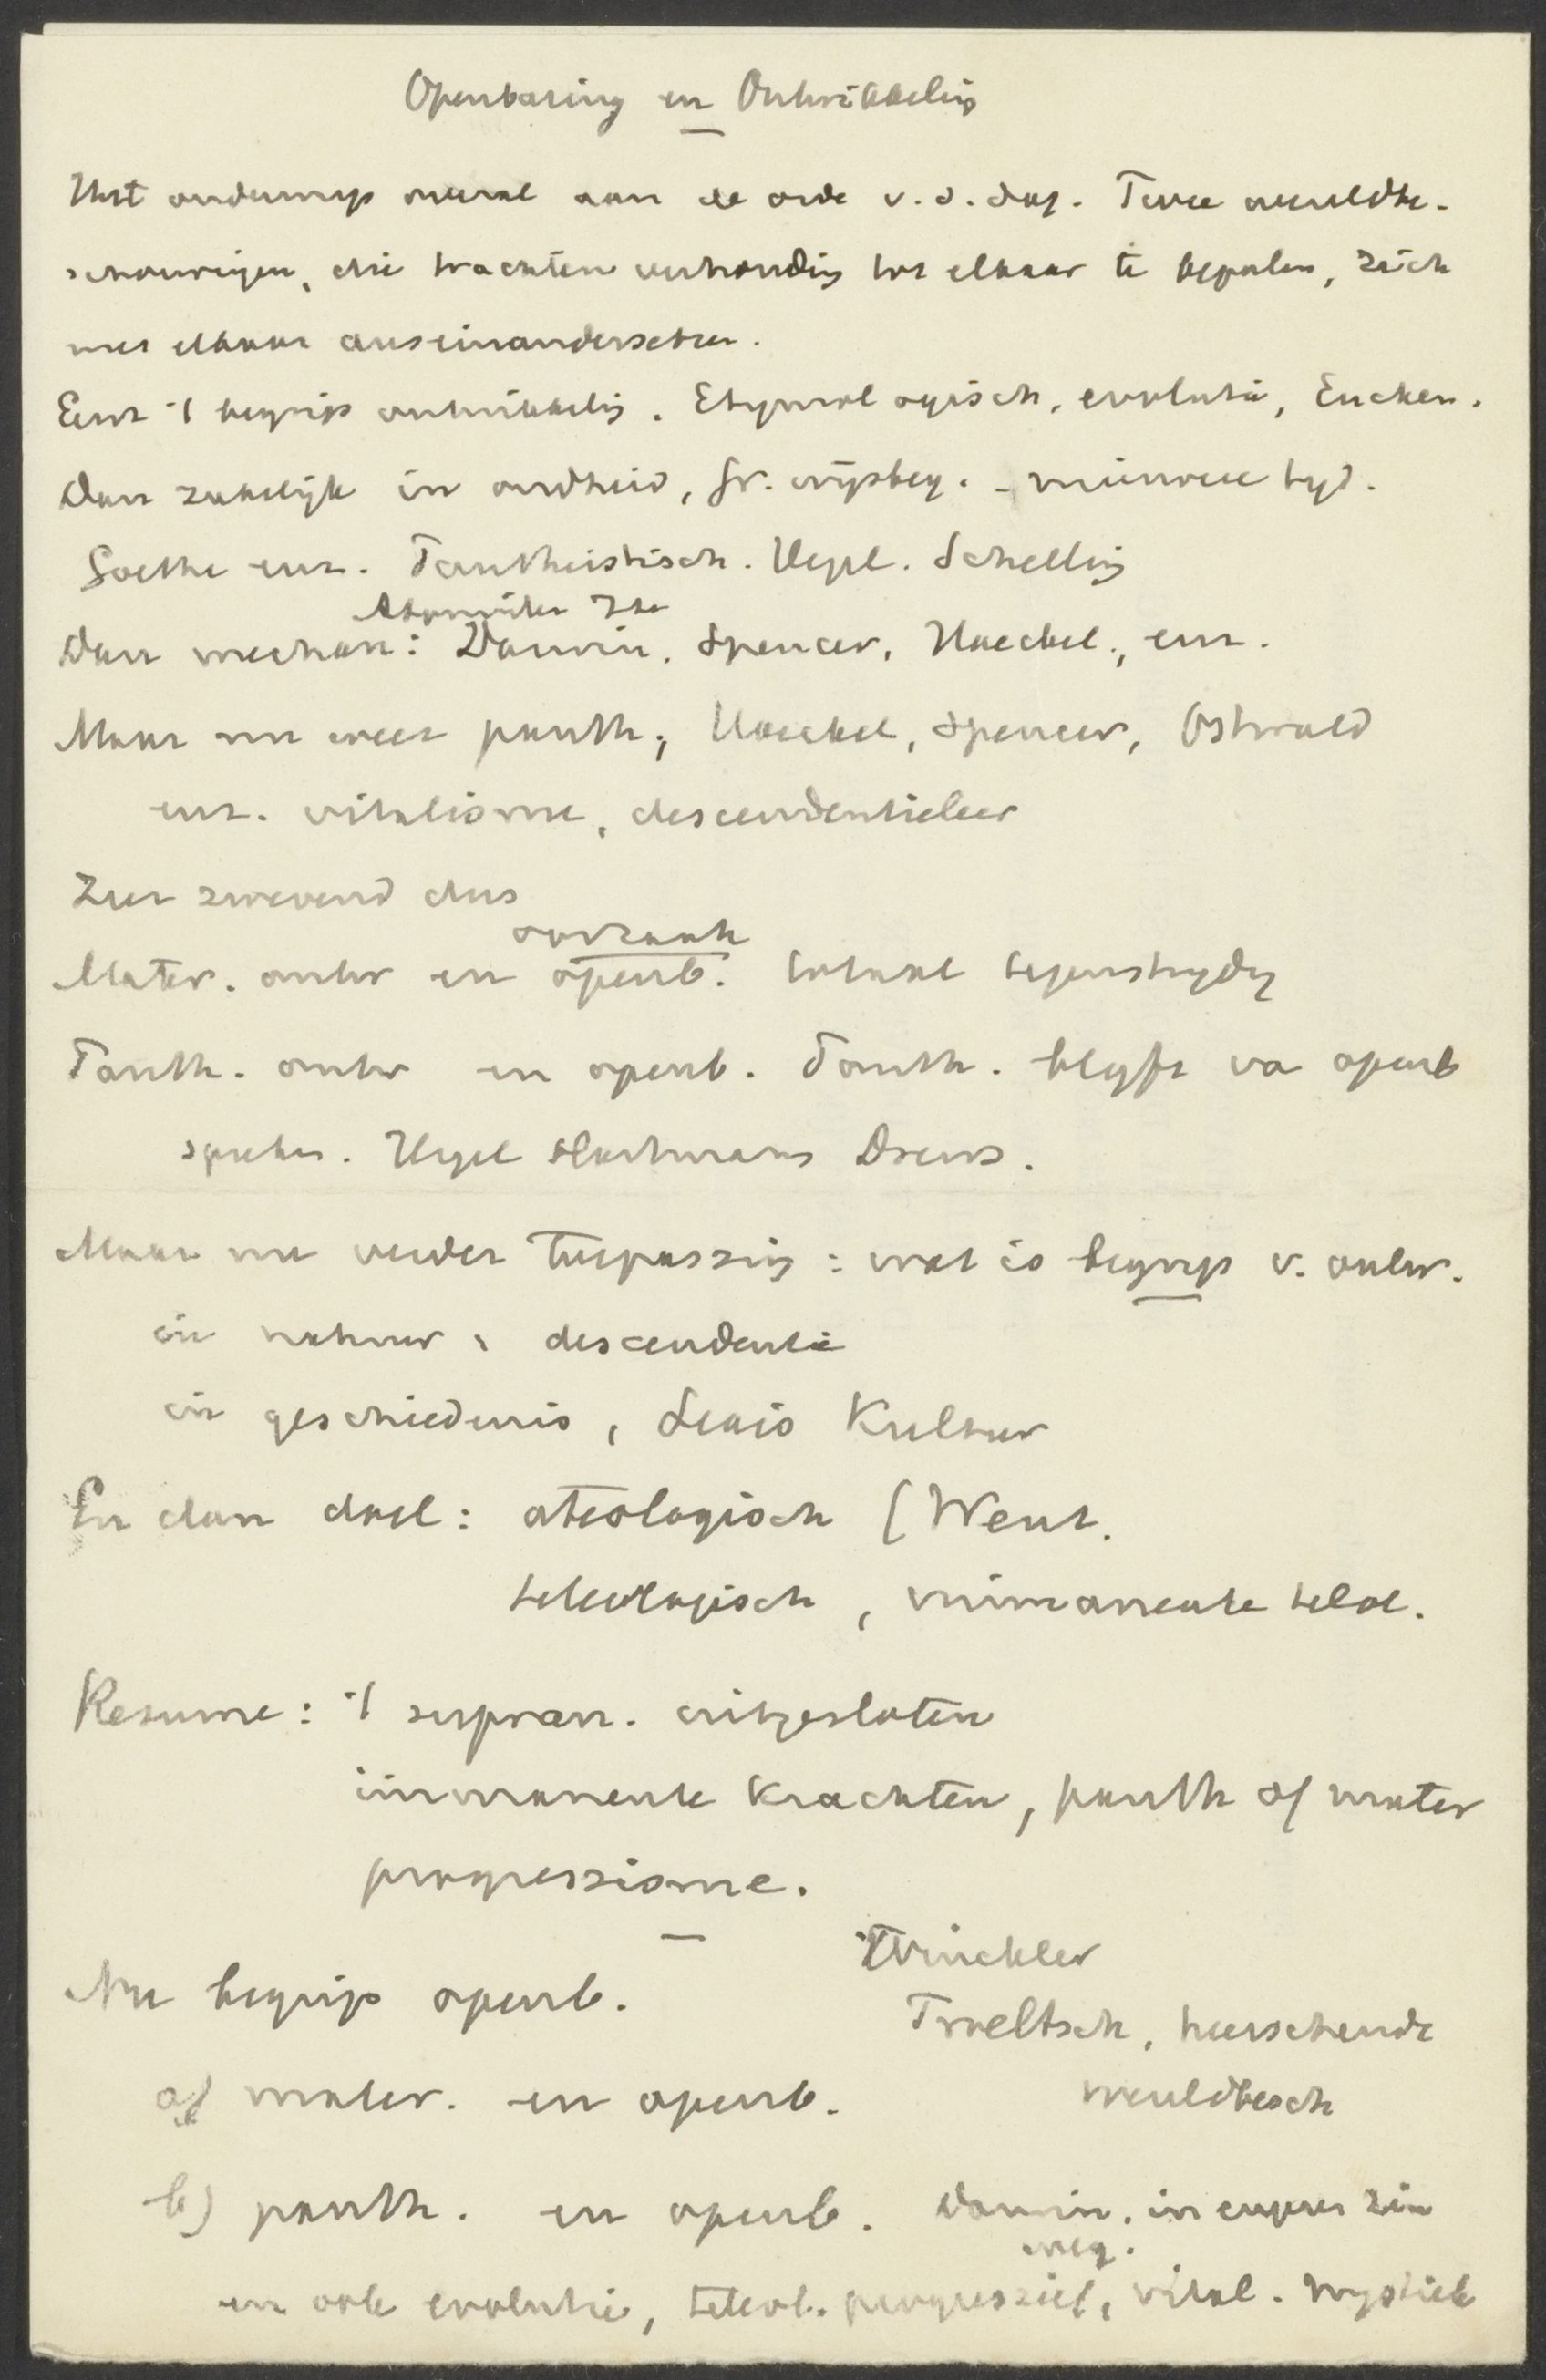 Openbaring en Ontwikkeling
Het onderwerp overal aan de orde v. d. dag. Twee wereldbe-
schouwingen, die trachten verhouding tot elkaar te bepalen, zich
met elkaar auseinandersetzen.
Eerst 't begrip ontwikkeling. Etymologisch, evolutie, Eucken.
Dan zakelijk in oudheid, Gr. wijsbeg. - nieuwere tijd.
Goethe enz. Pantheistisch. Hegel. Schelling
Atomisten
Dan mechan: Darwin, Spencer, Haeckel, enz.
Maar nu weer panth, Haeckel, Spencer, Ostwald
enz. vitalisme, descendentieleer
Zeer zwevend dus
oorzaak
Mater. ontw en openb. totaal tegenstrijdig
Panth. ontw en openb. Panth. blijft va openb
spreken. Hegel Hartmann Drews.
Maar nu verder toepassing: wat is begrip v. ontw.
in natuur, descendentie
in geschiedenis, Kultur
En dan doel: ateologisch (Went.
teleologisch, immanente teleol.
Resume: 't supran. uitgesloten
immanente krachten, panth of mater
progressisme.
Winckler
Nu begrip openb.
Troeltsch, heerschende
wereldbesch
a) mater. en openb.
b) panth. en openb. Darwin. in engeren zin
weg.
en ook evolutie, teleol. progressief, vital. mystiek